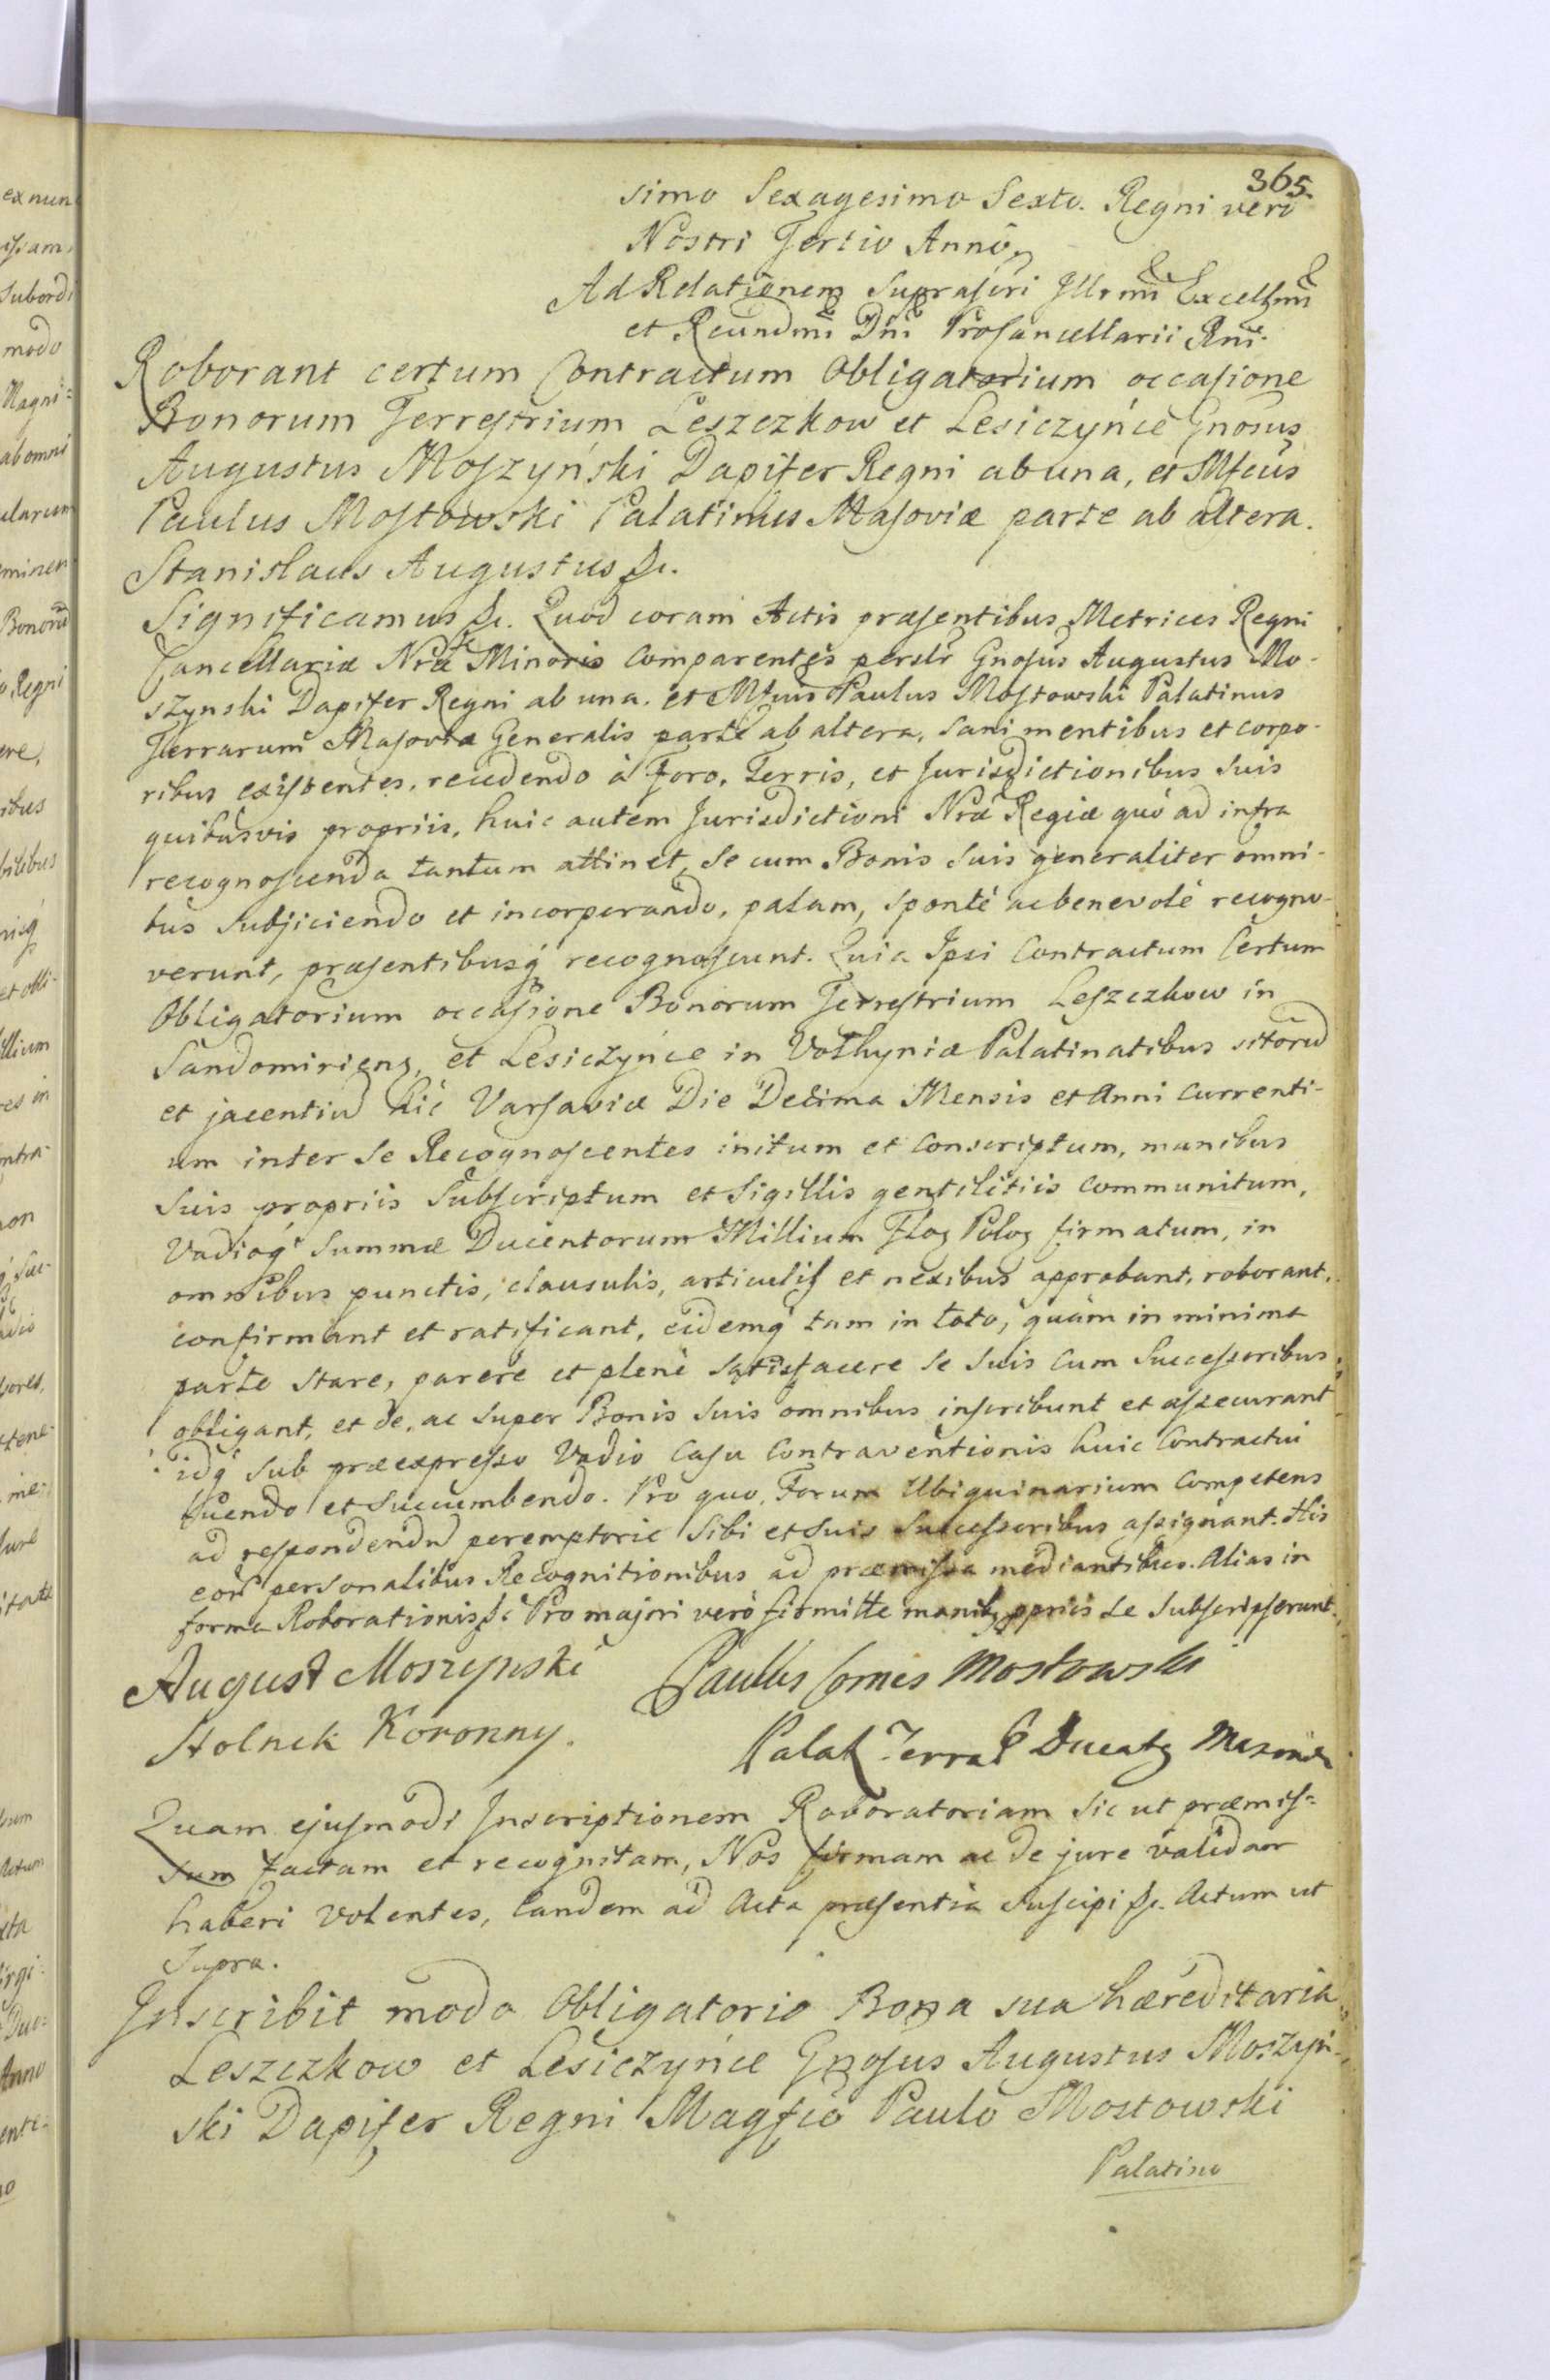 365.
simo Sexagesimo Sexto. Regni verò
Nostri Tertio Annô
Ad Relationem Suprascri Illrmi Excellsmi
et Reundmi Dni ProCancellarii Rni.
Roborant certum Contractum Obligatorium occasione
Bonorum Terrestrium Leszczkow et Lesiczyńce Gnosus
Augustus Moszyński Dapifer Regni ab una, et Mfcus
Paulus Mostowski Palatinus Masoviæ parte ab altera.
Stanislaus Augustus &c.
Significamus &c. Quod coram Actis præsentibus Metrices Regni
Cancellariæ Nræ Minoris comparentes persltr Gnosus Augustus Mo-
szynski Dapifer Regni ab una. et Mfcus Paulus Mostowski Palatinus
Terrarum Masoviæ Generalis parte ab altera, sani mentibus et corpo-
ribus existentes, recedendo à Foro, Terris, et Jurisdictionibus suis
quibusvis propriis, huic autem Jurisdictioni Nræ Regiæ quò ad infra
recognoscenda tantum attinet, se cum Bonis suis generaliter omni-
bus subjiciendo et incorporando, palam, spontè ac benevolè recogno-
verunt, præsentibusq recognoscunt. Quia Ipsi Contractum Certum
Obligatorium occasione Bonorum Terrestrium Leszczkow in
Sandomiriens, et Lesiczyńce in Volhyniæ Palatinatibus sitoru
et jacentiu hic Varsaviæ Die Decima Mensis et Anni currenti-
um inter se Recognoscentes initum et conscriptum, manibus
suis propriis subscriptum et sigillis gentilitiis communitum,
Vadioq summæ Ducentorum Millium Flor Polor firmatum, in
omnibus punctis, clausulis, articulis et nexibus approbant, roborant,
confirmant et ratificant, eidemq tam in toto, quàm in minima
parte stare, parere et plenè satisfacere se suis cum Successoribus
obligant, et de, ac super Bonis suis omnibus inscribunt et assecurant
idq sub præexpresso Vadio casu contraventionis huic Contractui
luendo et succumbendo. Pro quo, Forum Ubiquinarium competens
ad respondendu peremptorie sibi et suis successoribus assignant. His
eor personalibus Recognitionibus ad præmissa mediantibus. Alias in
forma Roborationis &c Pro majori verò firmitte manib ppriis se subscripserunt.
August Moszynski Paulus Comes Mostowski
Stolnik Koronny. Palat Terrar Ducats Masoviæ
Quam ejusmodi Inscriptionem Roboratoriam sic ut præmis-
sum factam et recognitam, Nos firmam ac de jure validam
haberi volentes, eandem ad Acta præsentia suscipi &c. Actum ut
supra.
Inscribit modo Obligatorio Bona sua hæreditaria
Leszczkow et Lesiczyńce Gnosus Augustus Moszyń-
ski Dapifer Regni Magfco Paulo Mostowski
Palatino